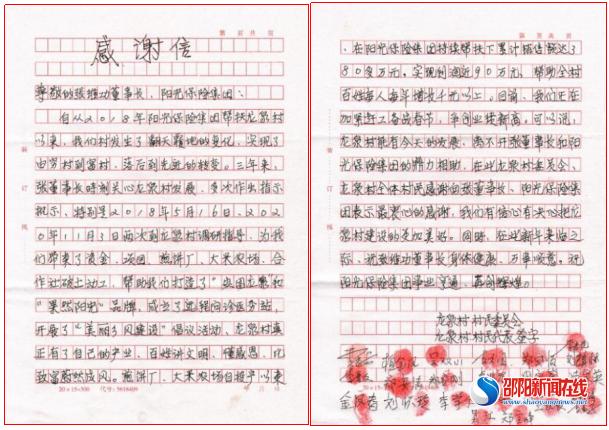 第 页 共 页
感谢信
尊敬的张维功董事长、阳光保险集团:
自从2018年阳光保险集团帮扶龙泉村
以来,我们村发生了翻天覆地的变化,实现了
由穷村到富村,落后到先进的转变。三年来,
张董事长时刻关心龙泉村发展,多次作出指示
批示,特别是2018年5月16日、202
0年11月3日两次到龙泉村调研指导,为我
们带来了资金、项目、煎饼厂、大米农场、合
作社破土动工,帮助我们打造了
和
“果然阳光”品牌,成立了远程问诊医务站,
开展了“美丽乡风建设”倡议活动,龙泉村真
正有了自己的产业、百姓讲文明、懂感恩、比
致富蔚然成风。煎饼厂、大米农场自投产以来
20×15=300 代号:5618409 年 月 日
装 订 线
第 页 共 页
,在阳光保险集团持续帮扶下累计销售额达3
80多万元,实现利润近90万元,帮助全村
百姓每人每年增长千元以上。目前,我们正在
加紧赶工备战春节,争创业绩新高。可以说,
龙泉村能有今天的发展,离不开张董事长和阳
光保险集团的鼎力相助。在此龙泉村委员会、
龙泉村全体村民感谢向张董事长、阳光保险集
团表示最衷心的感谢,我们有信心有决心把龙
泉村建设的更加美好。同时,在迎新年来临之
际,祝张维功董事长身体健康、万事顺意。祝
阳光保险集团事业亨通、再创辉煌。
龙泉村村民委员会
龙泉村村民代表签字
20×15=
邵阳新闻在线